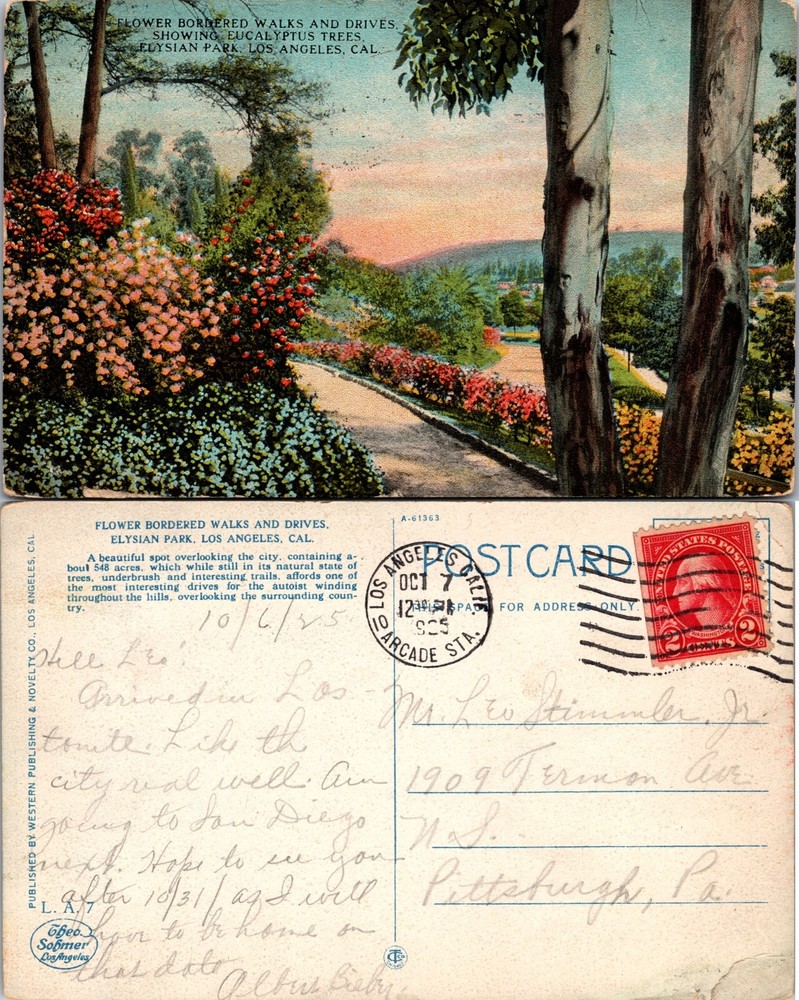 FLOWER BORDERED WALKS AND DRIVES,
SHOWING EUCALYPTUS TREES,
ELYSIAN PARK, LOS ANGELES, CAL.
FLOWER BORDERED WALKS AND DRIVES,
ELYSIAN PARK, LOS ANGELES, CAL.
A beautiful spot overlooking the city, containing a-
bout 548 acres, which while still in its natural state of
trees, underbrush and interesting trails, affords one of
the most interesting drives for the autoist winding
throughout the hills, overlooking the surrounding coun-
try.
10/6/25
Hello Leo
Arrived in Los
tonite. Like th
city real well. Am
going to San Diego
next. Hope to see you
after 10/31/ as I will
have to be home on
that date
Albert
PUBLISHED BY WESTERN PUBLISHING & NOVELTY CO., LOS ANGELES, CAL.
L. A. 7
Theo.
Sohmer
Los Angeles
A-61363
POST CARD
THIS SPACE FOR ADDRESS ONLY.
LOS ANGELES CALIF.
OCT 7
12
1925
ARCADE STA.
UNITED STATES POSTAGE
WASHINGTON
2 CENTS 2
Mr. Leo Stimmler, Jr.
1909 Termon Ave
N.S.
Pittsburgh, Pa.